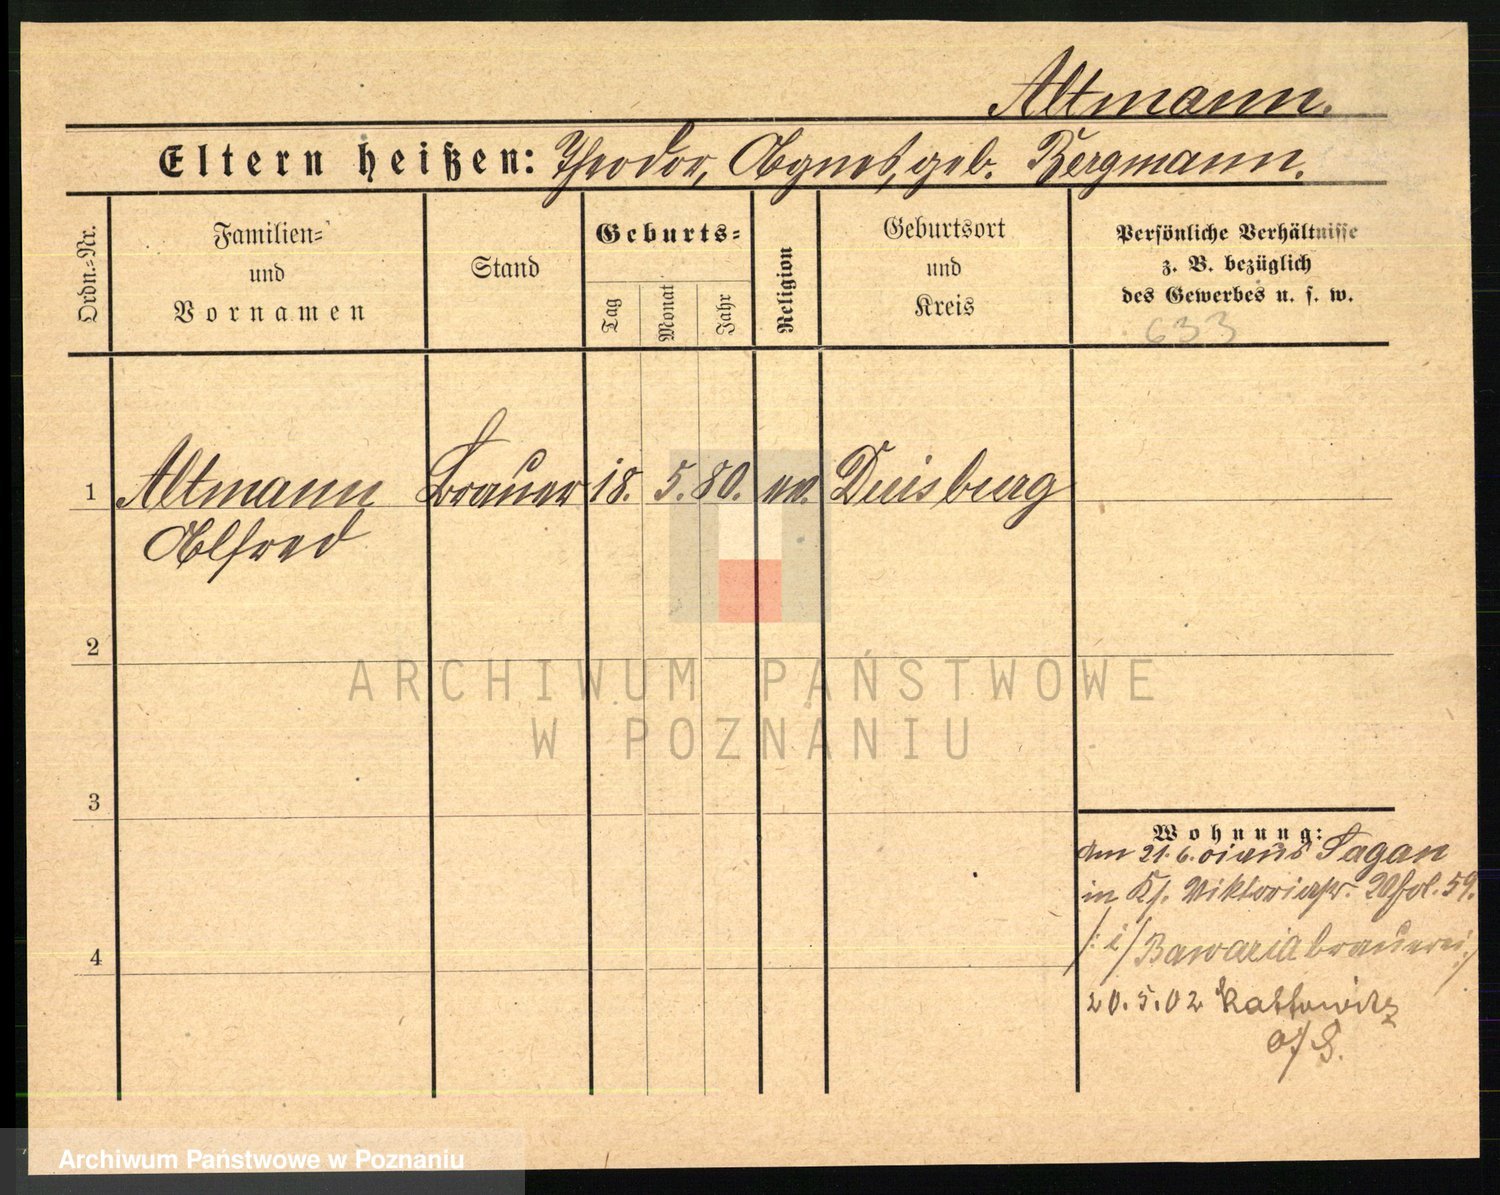 Altmann.
Eltern heißen: Theodor, Agnes, geb. Bergmann.
Ordn.-Nr.
Familien-
und
Vornamen
Stand
Geburts-
Tag
Monat
Jahr
Religion
Geburtsort
und
Kreis
Persönliche Verhältnisse
z. B. bezüglich
des Gewerbes u. s. w.
633
1 Altmann Brauer 18. 5. 80. ev. Duisburg
Alfred
2
3
4
Wohnung:
Am 21.6.01 aus Sagan
in Viktoriastr. 20 59.
Bawaria brauerei
20.5.02 Kattowitz
o/S.
ARCHIWUM PAŃSTWOWE
W POZNANIU
Archiwum Państwowe w Poznaniu